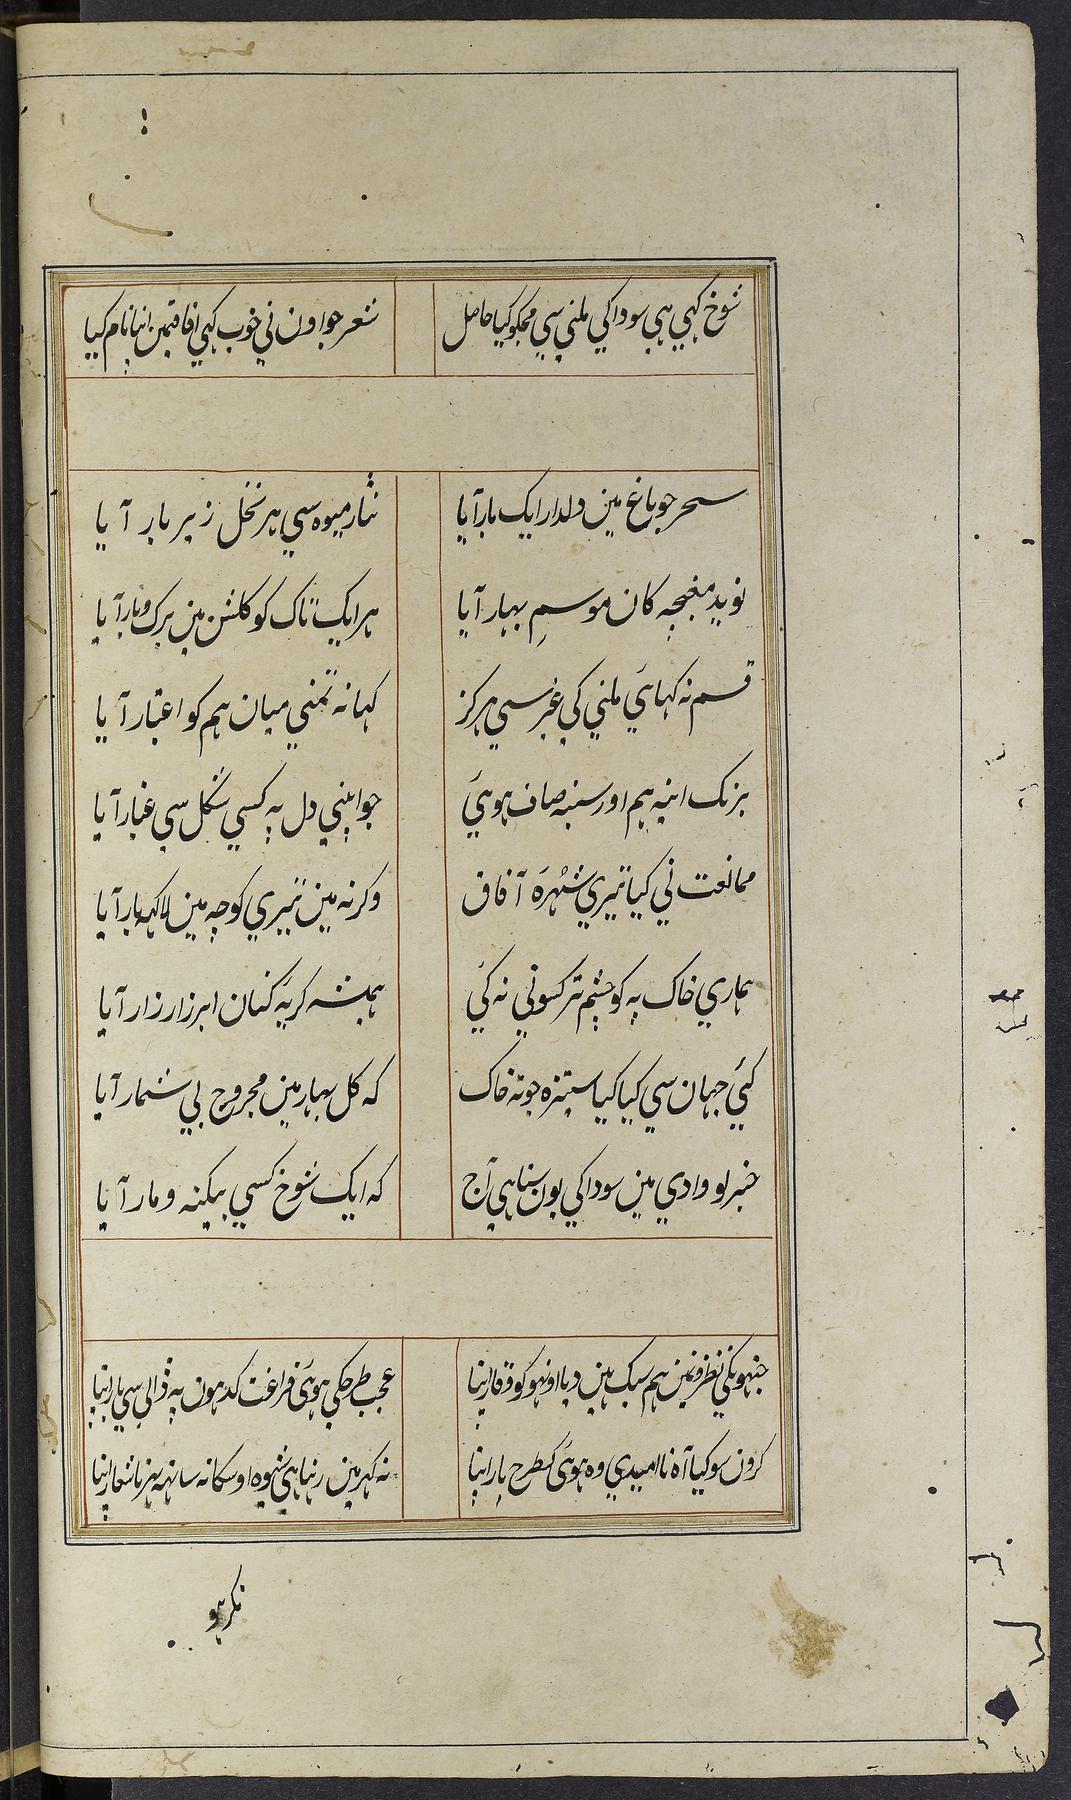 شوخ کہي ہي سودا کي ملني سي مجکو کیا حاصل
شعر جو اون ني خوب کہي آفاقمین اپنا نام کیا
سحر جو باغ مین دلدار ایک بار آیا
نثار میوہ سي ہر نخل زیر بار آیا
نوید مغبچہ کان موسمِ بہار آیا
ہر ایک تاک کو کلشن مین برک و بار آیا
قسم نہ کہائي ملني کي غیر سي ہرکز
کہا نہ تمني میان ہم کو اعتبار آیا
برنک اینہ ہم اور سینہ صاف ہوئي
جو اپني دل پہ کسي شکل سي غبار آیا
ممانعت ني کیا تیري شہرۂ آفاق
وکرنہ مین تیري کوچہ مین لاکہہ بار آیا
ہماري خاک پہ کو چشم تر کسو ني نہ کي
ہمیشہ کریہ کنان ابر زار زار آیا
کئي جہان سي کیا کیا ستیزہ جو تہ خاک
کہ کل بہار مین مجروح بي شمار آیا
خبر لو وادي مین سودا کي یون سنا ہي آج
کہ ایک شوخ کسي بیکنہ و مار آیا
جنہونکي نظرونمین ہم سبک ہین دیا اونہو کو وقار اپنا
عجب طرحکي ہوئي فراغت کدہون پہ ڈالي سي بار اپنا
کرون سو کیا آہ نا امیدي وہ ہوئي کسطرح یار اپنا
نہ کہر مین رہنا ہي شیوہ اوسکا نہ ساتہہ پہرنا شعار اپنا
نکر ہو